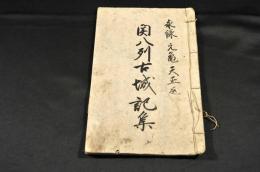 永禄 元亀 天正
関八列古城記集